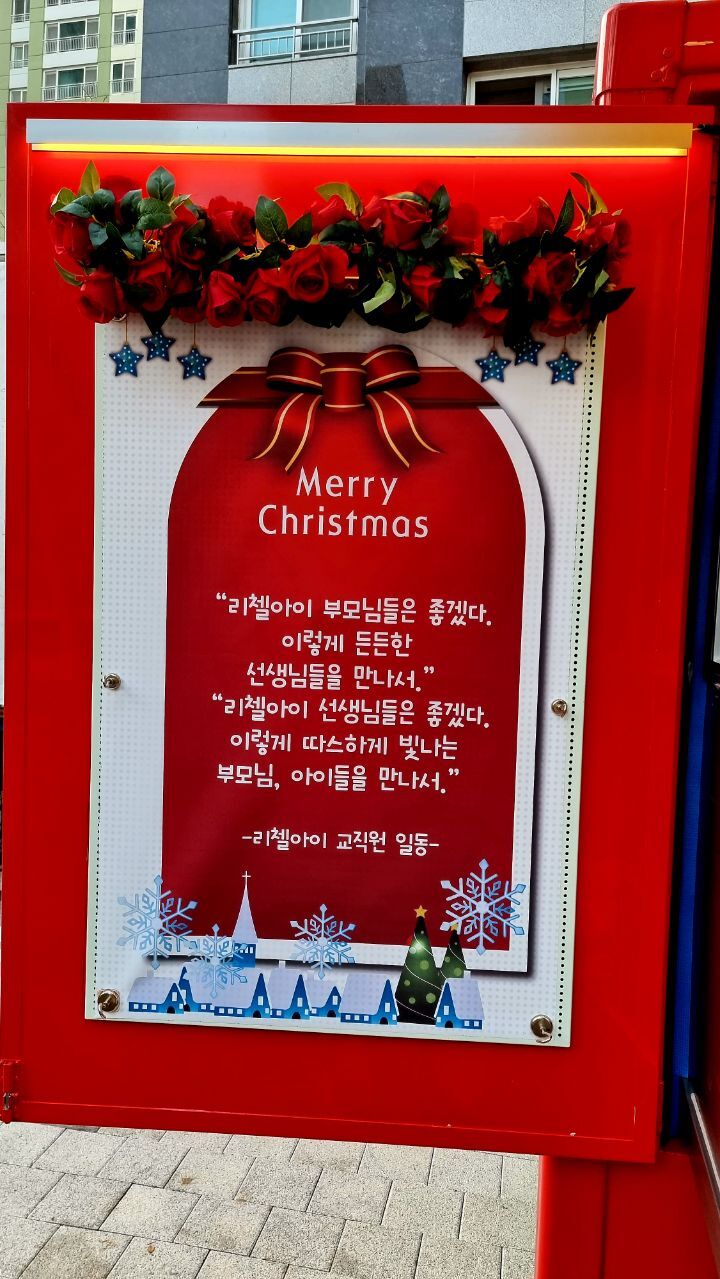 Merry
Christmas
“리첼아이 부모님들은 좋겠다.
이렇게 든든한
선생님들을 만나서.”
“리첼아이 선생님들은 좋겠다.
이렇게 따스하게 빛나는
부모님, 아이들을 만나서.”
-리첼아이 교직원 일동-